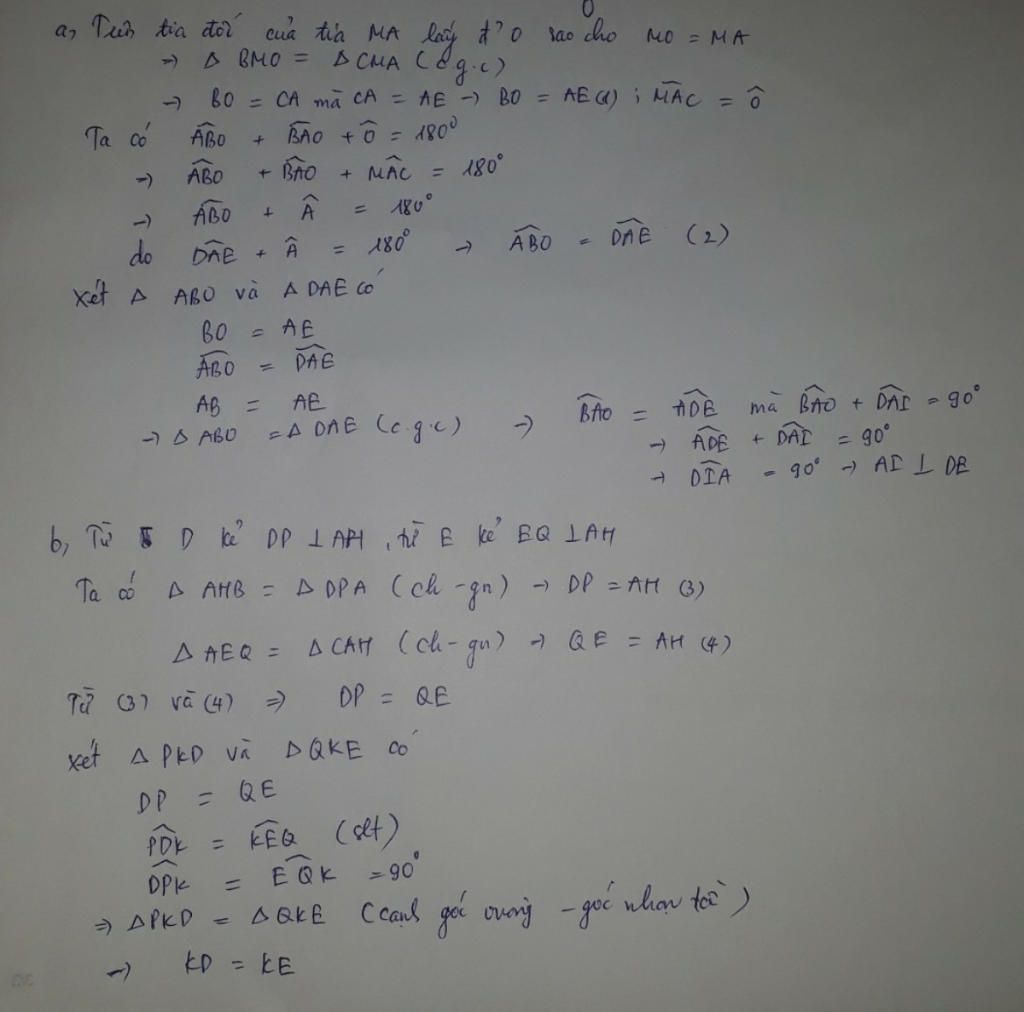 a, Trên tia đối của tia MA lấy đ' O sao cho MO = MA
→ Δ BMO = Δ CMA (c.g.c)
→ BO = CA mà CA = AE → BO = AE (1) ; \widehat{MAC} = \hat{O}
Ta có \widehat{ABO} + \widehat{BAO} + \hat{O} = 180°
→ \widehat{ABO} + \widehat{BAO} + \widehat{MAC} = 180°
→ \widehat{ABO} + \hat{A} = 180°
do \widehat{DAE} + \hat{A} = 180° → \widehat{ABO} = \widehat{DAE} (2)
Xét Δ ABO và Δ DAE có
BO = AE
\widehat{ABO} = \widehat{DAE}
AB = AE
→ Δ ABO = Δ DAE (c.g.c) → \widehat{BAO} = \widehat{ADE} mà \widehat{BAO} + \widehat{DAI} = 90°
→ \widehat{ADE} + \widehat{DAI} = 90°
→ \widehat{DIA} = 90° → AI ⊥ DE
b, Từ D kẻ DP ⊥ AH, từ E kẻ EQ ⊥ AH
Ta có Δ AHB = Δ DPA (ch - gn) → DP = AH (3)
Δ AEQ = Δ CAH (ch - gn) → QE = AH (4)
Từ (3) và (4) ⇒ DP = QE
Xét Δ PKD và Δ QKE có
DP = QE
\widehat{PDK} = \widehat{KEQ} (slt)
\widehat{DPK} = \widehat{EQK} = 90°
⇒ Δ PKD = Δ QKE (cạnh góc vuông - góc nhọn)
→ KD = KE